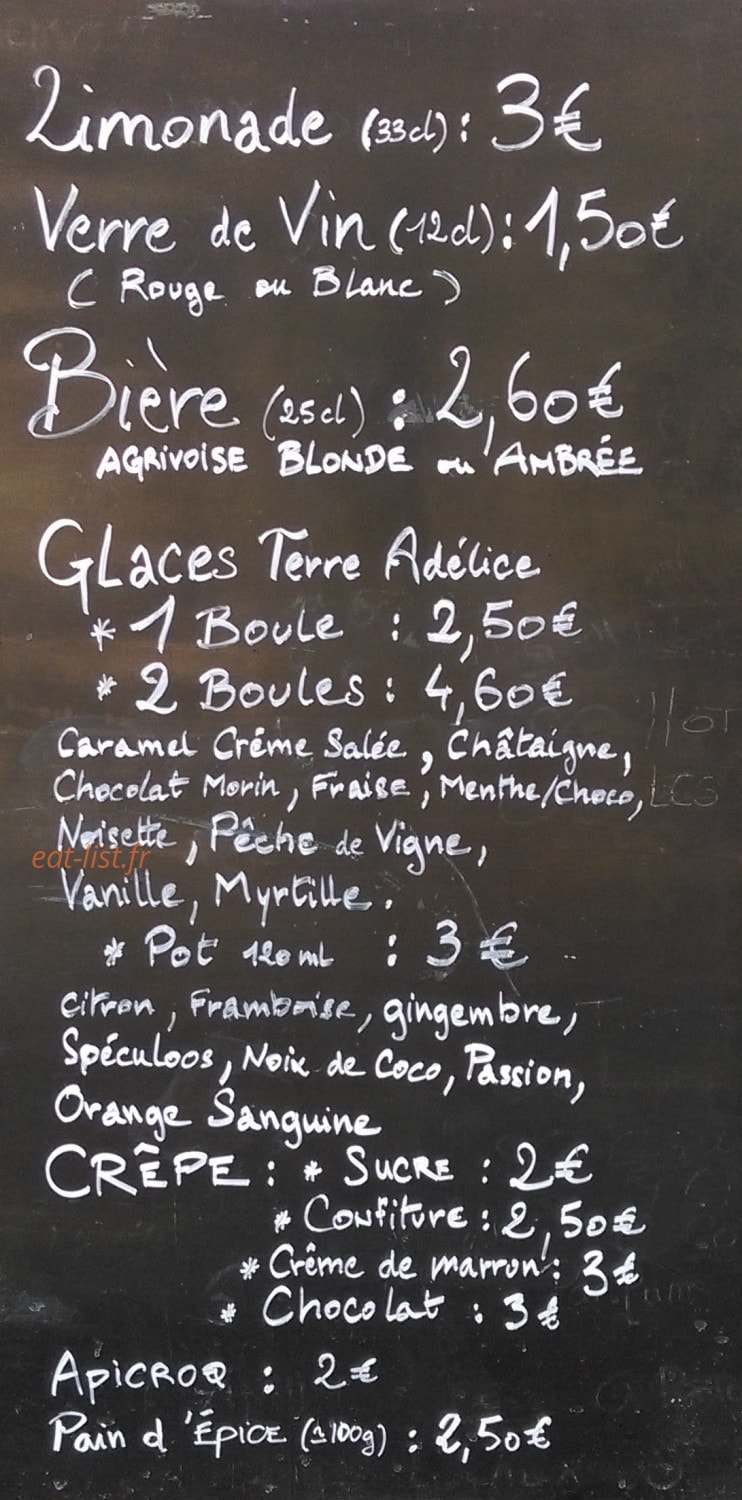 Limonade (33cl) : 3€
Verre de Vin (12cl) : 1,50€
( Rouge ou Blanc )
Bière (25cl) : 2,60€
AGRIVOISE BLONDE ou AMBRÉE
GLACES Terre Adélice
* 1 Boule : 2,50€
* 2 Boules : 4,60€
Caramel Créme Salée, Châtaigne,
Chocolat Morin, Fraise, Menthe/Choco,
Noisette, Pêche de Vigne,
eat-list.fr
Vanille, Myrtille.
* Pot 120 ml : 3 €
Citron, Framboise, gingembre,
Spéculoos, Noix de Coco, Passion,
Orange Sanguine
CRÊPE : * SUCRE : 2€
* Confiture : 2,50€
* Crême de marron : 3€
* Chocolat : 3€
APICROQ : 2€
Pain d'ÉPICE (≃100g) : 2,50€